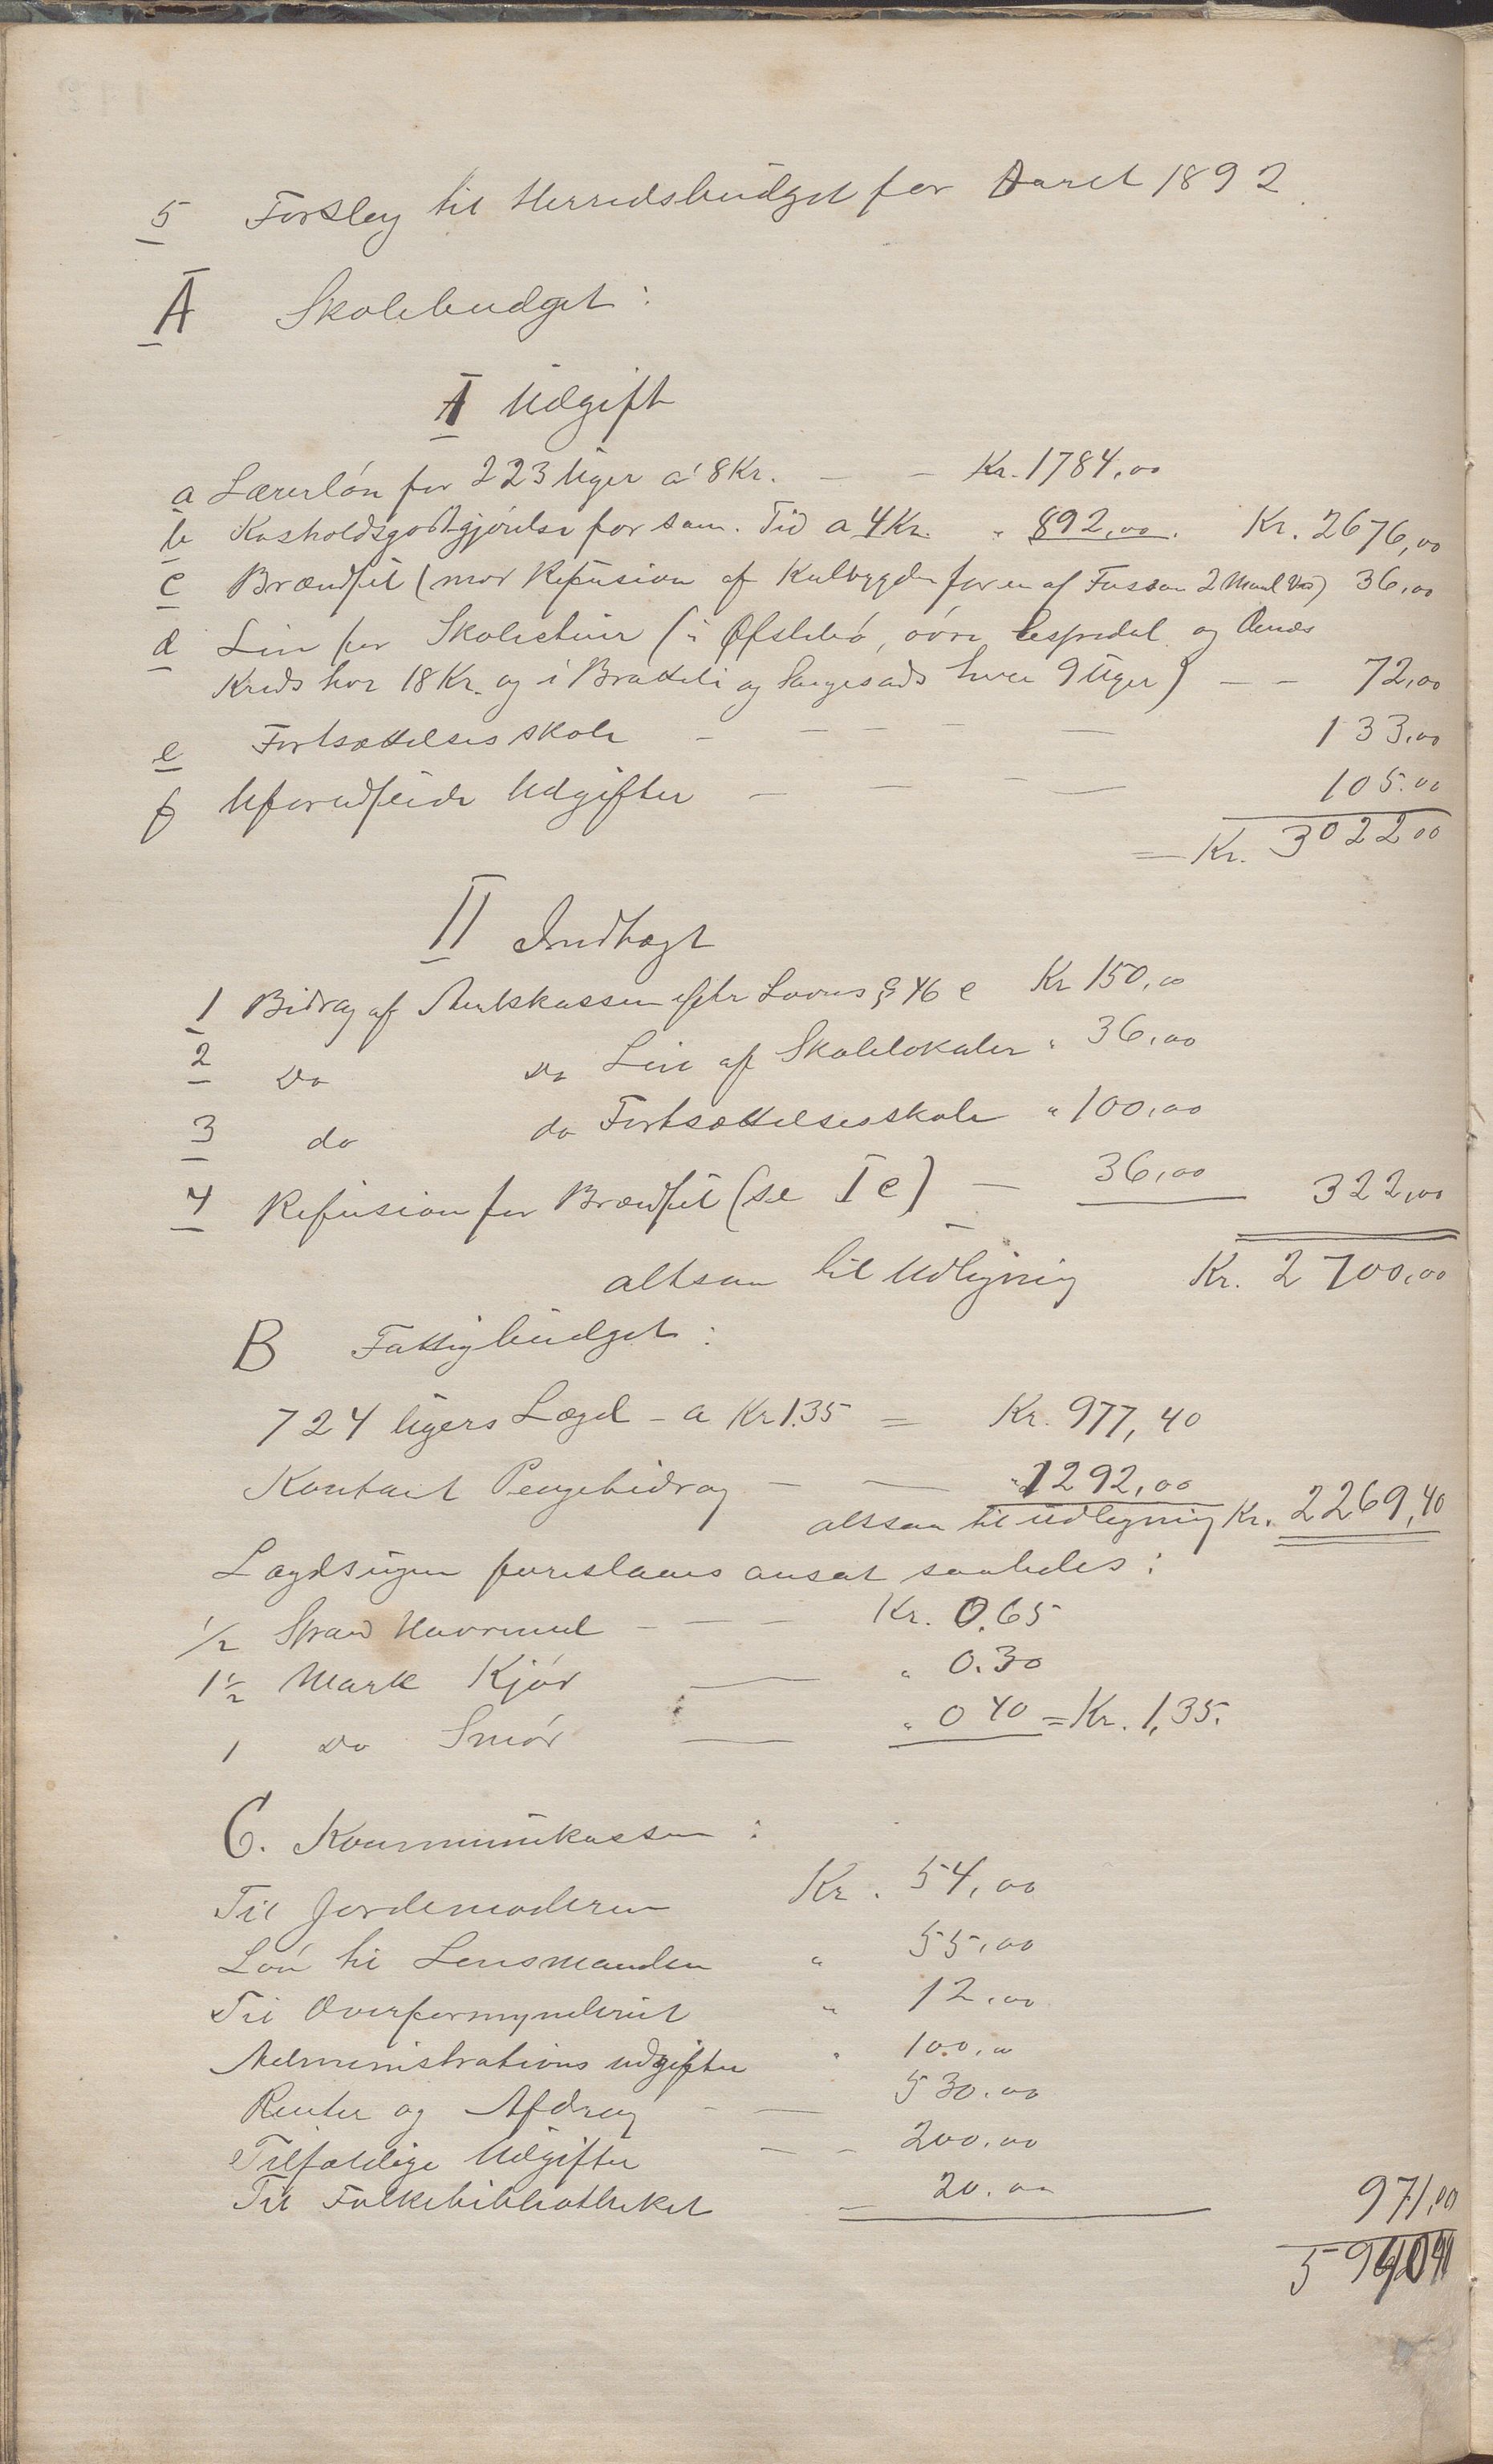 5 Forslag til Herredsbudget for Aaret 1892.
A Skolebudget:
I Udgift
a Lærerløn for 223 Uger a 8 Kr. — — Kr. 1784,00
b Kostholdsgodtgjørelse for sam. Tid a 4 Kr. " 892,00. Kr. 2676,00
c Brændsel (mod Refusion af for en af 2 Ved) 36,00
d Leie for Skolestuer (i Øfstebø, øvre Espedal og
Kreds hver 18 Kr. og i Bratteli og hver 9 Uger) — — 72,00
e Fortsættelsesskole — — — — — 133,00
f Uforudseede Udgifter — — — — 105.00
= Kr. 3022 00
II Indtægt
1 Bidrag af Amtskassen efter Lovens § 46 e Kr 150,00
2 Do Do Leie af Skolelokaler " 36,00
3 do do Fortsættelsesskole " 100,00
4 Refusion for Brændsel (se I c) — 36,00 322,00
altsaa til Udligning Kr. 2700,00
B Fattigbudget:
724 Ugers Lægd - a Kr 1.35 = Kr. 977,40
Kontant Pengebidrag — — " 1292,00
altsaa til Udligning Kr. 2269,40
Lægdsugen foreslaaes ansat saaledes:
1/2 Spand Havremel — — — Kr. 0.65
1 1/2 Mark Kjød — " 0.30
1 Do Smør — " 0 40 = Kr. 1,35.
C. Kommunekassen:
Til Jordemoderen Kr. 54,00
Løn til Lensmanden " 55,00
Til Overformynderiet " 12,00
Administrations udgifter " 100,00
Renter og Afdrag — — 530.00
Tilfældige Udgifter — — 200.00
Til Folkebibliotheket — 20.00 971,00